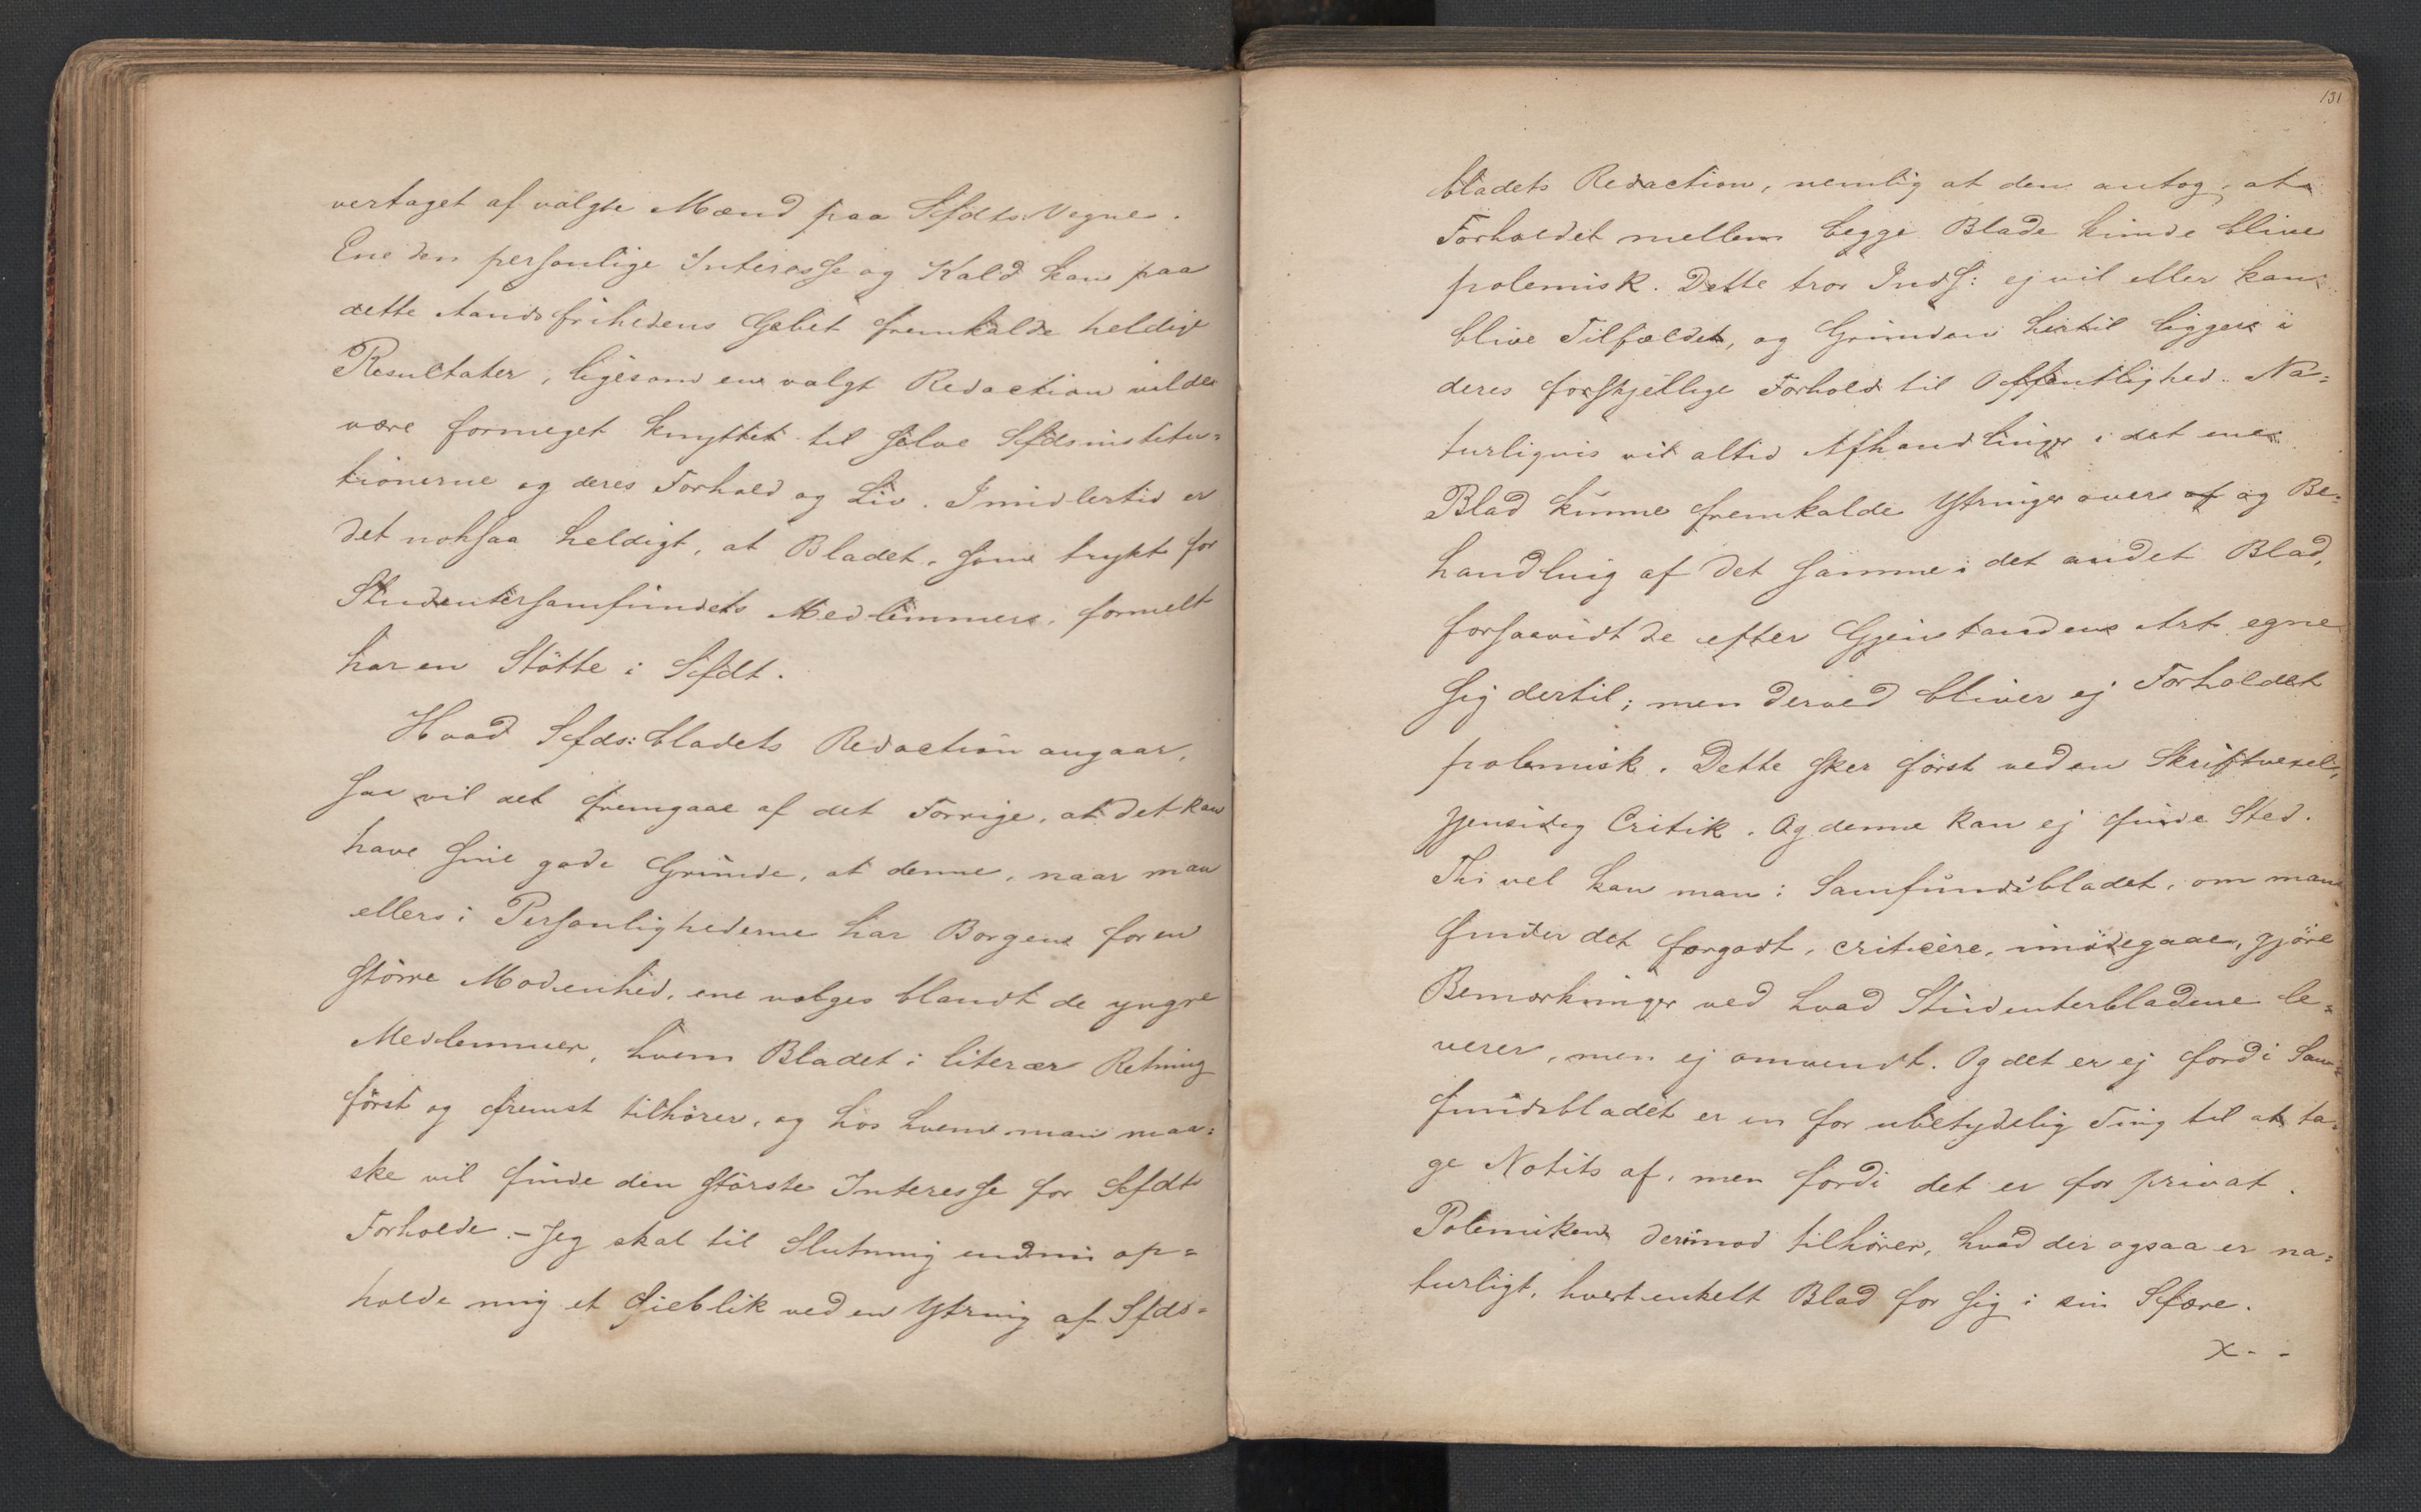 vertaget af valgte Mænd paa Sfdts: Vegne.
Ene den personlige Interesse og Kald kan paa
dette Aandsfrihedens Gebet fremkalde heldige
Resultater, ligesom en valgt Redaction vilde
være formeget knyttet til selve Sfdsinstitu=
tionerne og deres Forhold og Liv. Imidlertid er
det noksaa heldigt, at Bladet, som trykt for
Studentersamfundets Medlemmer, formelt
har en Støtte i Sfdt.
Hvad Sfds: bladets Redaction angaar,
saa vil det fremgaae af det Forrige, at det kan
have sine gode Grunde, at denne, naar man
ellers i Personlighederne har Borgen for en
større Modenhed, ene vælges blandt de yngre
Medlemmer, hvem Bladet i literær Retning
først og fremst tilhører, og hos hvem man maa=
ske vil finde den største Interesse for Sfdts
Forholde. – Jeg skal til Slutning endnu op=
holde mig et Øieblik ved en Ytring af Sfds=
131
bladets Redaction, nemlig at den antog, at
Forholdet mellem begge Blade kunde blive
polemisk. Dette tror Inds: ej vil eller kan
blive Tilfældet, og Grunden hertil ligger i
deres forskjellige Forhold til Offentlighed. Na=
turligvis vil altid Afhandlinger i det ene
Blad kunne fremkalde Ytringer over af og Be=
handling af det samme i det andet Blad,
forsaavidt de efter Gjenstandens Art egne
sig dertil; men derved bliver ej Forholdet
polemisk. Dette sker først ved en Skriftvexel,
gjensidig Critik. Og denne kan ej finde Sted.
Thi vel kan man i Samfundsbladet, om man
finder det forgodt, criticere, imødegaae, gjøre
Bemærkninger ved hvad Studenterbladene le=
verer, men ej omvendt. Og det er ej fordi Sam=
fundsbladet er en for ubetydelig Ting til at ta=
ge Notits af, men fordi det er for privat.
Polemiken derimod tilhører, hvad der ogsaa er na=
turligt, hvert enkelt Blad for sig i sin Sfære.
X - -